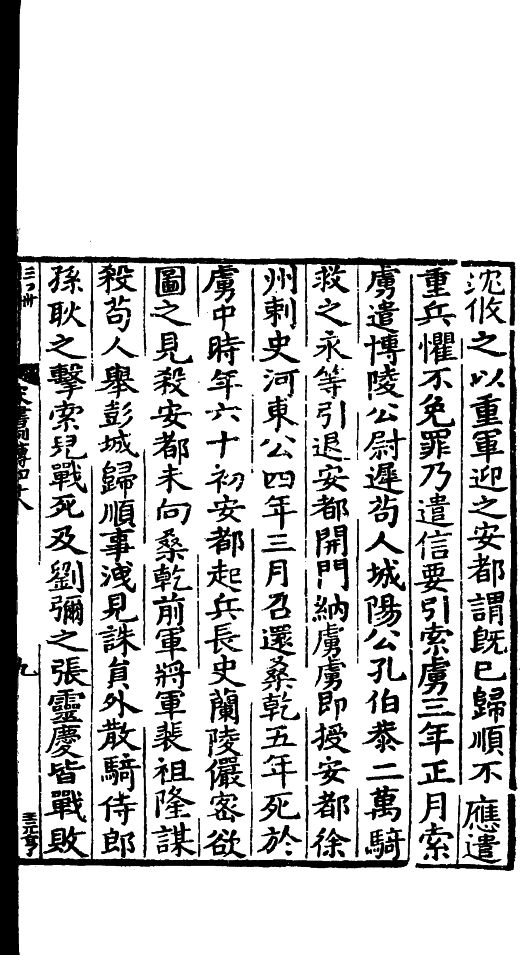 沈攸之以重軍迎之安都謂既已歸順不應遣
重兵懼不免罪乃遣信要引索虜三年正月索
虜遣博陵公尉遲苟人城陽公孔伯恭二萬騎
救之永等引退安都開門納虜虜即授安都徐
州刺史河東公四年三月召還桑乾五年死於
虜中時年六十初安都起兵長史蘭陵儼密欲
圖之見殺安都未向桑乾前軍將軍裴祖隆謀
殺苟人舉彭城歸順事洩見誅員外散騎侍郎
孫耿之擊索兒戰死及劉彌之張靈慶皆戰敗
宋書列傳四十八
九